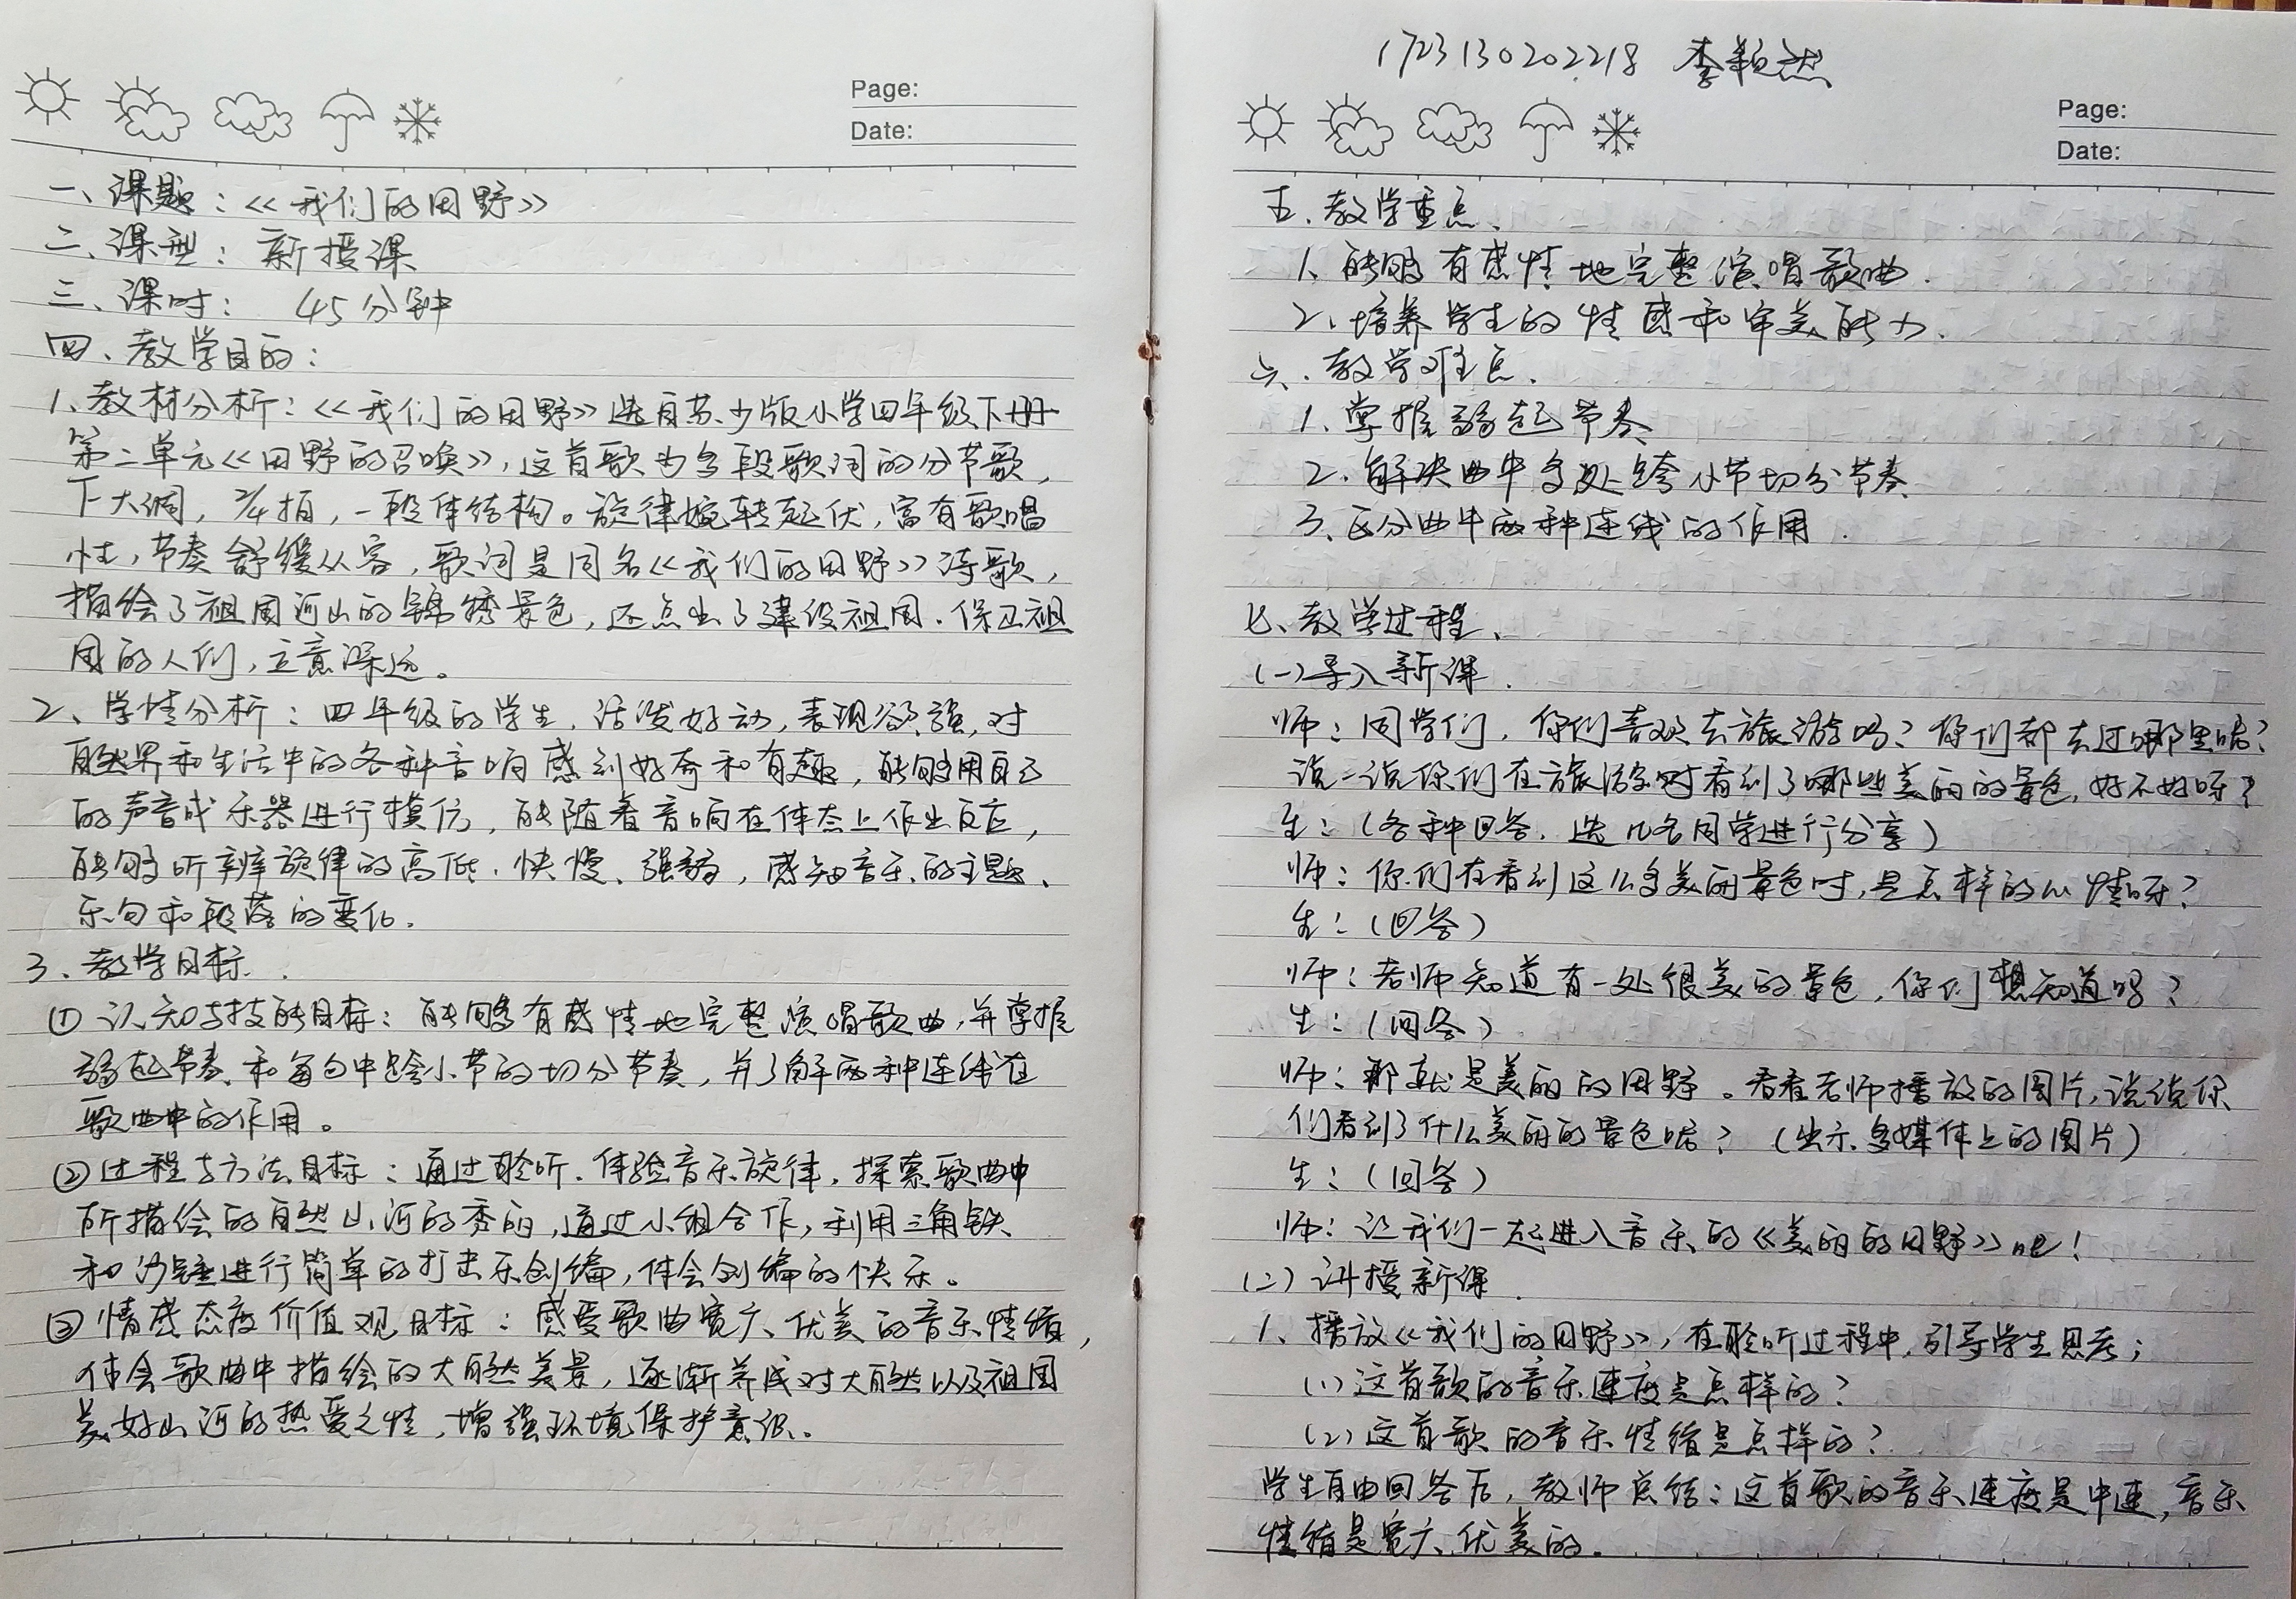 Page:
Date:
一、课题：《我们的田野》
二、课型：新授课
三、课时： 45分钟
四、教学目的：
1、教材分析：《我们的田野》选自苏少版小学四年级下册
第二单元《田野的召唤》，这首歌为多段歌词的分节歌，
下大调，2/4拍，一段体结构。旋律婉转起伏，富有歌唱
性，节奏舒缓从容，歌词是同名《我们的田野》诗歌，
描绘了祖国河山的锦绣景色，还点出了建设祖国、保卫祖
国的人们，立意深远。
2、学情分析：四年级的学生，活泼好动，表现欲强，对
自然界和生活中的各种音响感到好奇和有趣，能够用自己
的声音或乐器进行模仿，能随着音响在体态上作出反应，
能够听辨旋律的高低、快慢、强弱，感知音乐的主题、
乐句和段落的变化。
3、教学目标
① 认知与技能目标：能够有感情地完整演唱歌曲，并掌握
弱起节奏和每句中跨小节的切分节奏，并了解两种连线在
歌曲中的作用。
② 过程与方法目标：通过聆听、体验音乐旋律，探索歌曲中
所描绘的自然山河的秀丽，通过小组合作，利用三角铁
和沙锤进行简单的打击乐创编，体会创编的快乐。
③ 情感态度价值观目标：感受歌曲宽广、优美的音乐情绪，
体会歌曲中描绘的大自然美景，逐渐养成对大自然以及祖国
美好山河的热爱之情，增强环境保护意识。
1723130202218 李颖然
Page:
Date:
五、教学重点、
1、能够有感情地完整演唱歌曲.
2、培养学生的情感和审美能力.
六、教学难点.
1、掌握弱起节奏
2、解决曲中多处跨小节切分节奏
3、区分曲中两种连线的作用.
七、教学过程、
(一)导入新课.
师：同学们，你们喜欢去旅游吗？你们都去过哪里呢？
说一说你们在旅游时看到了哪些美丽的景色，好不好呀？
生：（各种回答，选几名同学进行分享）
师：你们在看到这么多美丽景色时，是怎样的心情呀？
生：（回答）
师：老师知道有一处很美的景色，你们想知道吗？
生：（回答）
师：那就是美丽的田野。看看老师播放的图片，说说你
们看到了什么美丽的景色呢？（出示多媒体上的图片）
生：（回答）
师：让我们一起进入音乐的《美丽的田野》吧！
(二)讲授新课.
1、播放《我们的田野》，在聆听过程中，引导学生思考；
(1)这首歌的音乐速度是怎样的？
(2)这首歌的音乐情绪是怎样的？
学生自由回答后，教师总结：这首歌的音乐速度是中速，音乐
情绪是宽广、优美的。